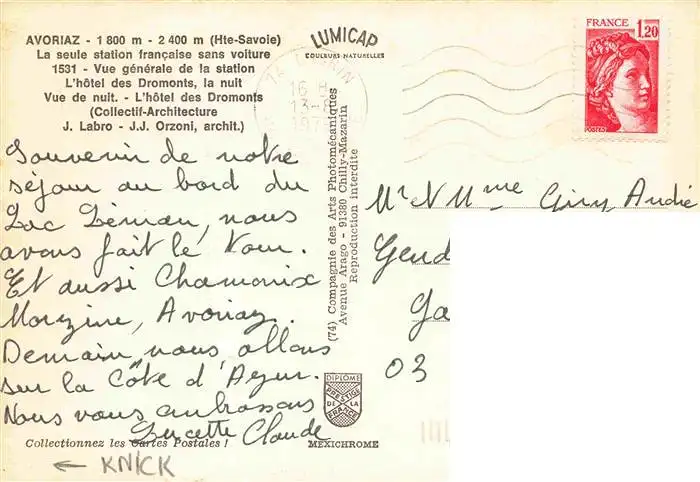 AVORIAZ - 1 800 m - 2 400 m (Hte-Savoie)
La seule station française sans voiture
1531 - Vue générale de la station
L'hôtel des Dromonts, la nuit
Vue de nuit. - L'hôtel des Dromonts
(Collectif-Architecture
J. Labro - J.J. Orzoni, archit.)
LUMICAP
COULEURS NATURELLES
FRANCE 1,20
POSTES
16 H
13-8
Souvenir de notre
séjour au bord du
Lac Léman, nous
avons fait le tour.
Et aussi Chamonix
Morzine, Avoriaz.
Demain, nous allons
sur la Côte d'Azur.
Nous vous embrassons
Lucette Claude
(74) Compagnie des Arts Photomécaniques
Avenue Arago - 91380 Chilly-Mazarin
Reproduction interdite
Mr & Mme André
Gend
Ga
03
DIPLOME
PRESTIGE
DE LA
FRANCE
MEXICHROME
Collectionnez les Cartes Postales !
← KNICK